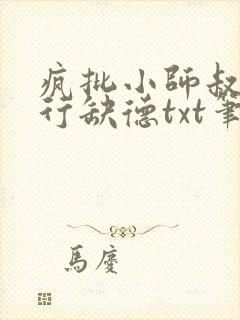 疯批小師叔
行缺德txt筆
馬慶